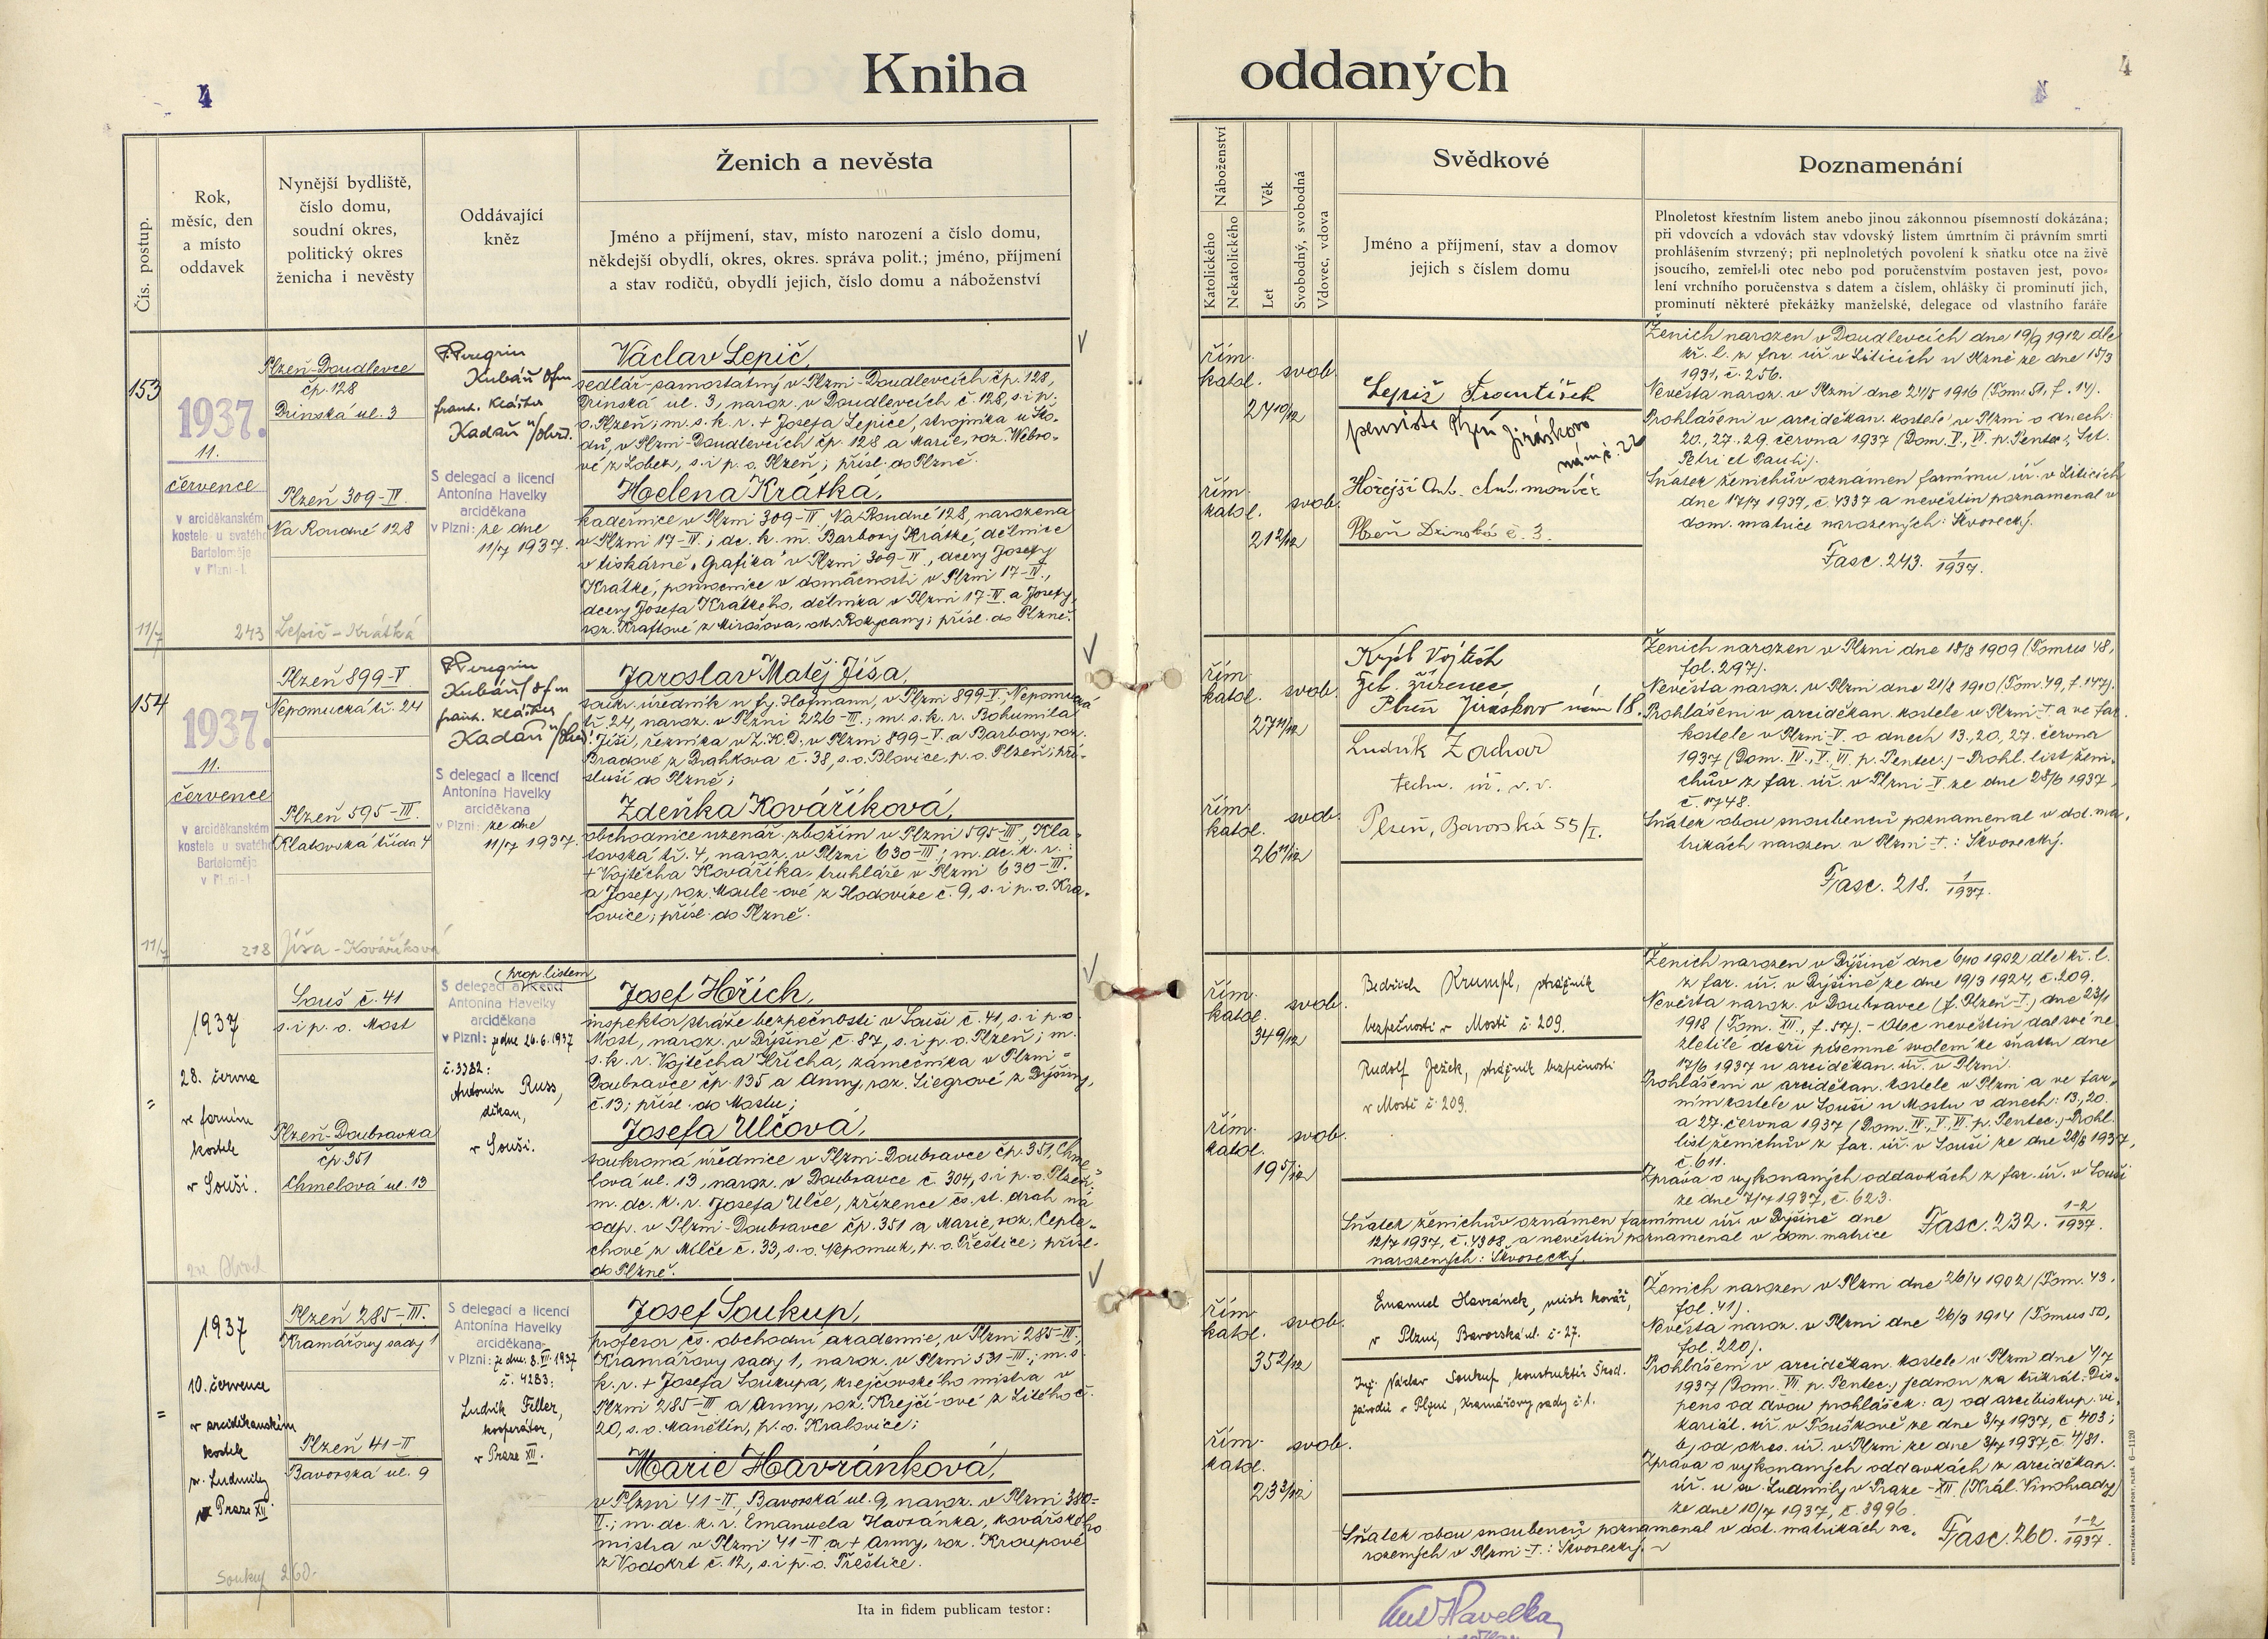 4
Kniha
oddaných
4
Čís. postup.
Rok,
měsíc, den
a místo
oddavek
Nynější bydliště,
číslo domu,
soudní okres,
politický okres
ženicha i nevěsty
Oddávající
kněz
Ženich a nevěsta
Jméno a příjmení, stav, místo narození a číslo domu,
někdejší obydlí, okres, okres. správa polit.; jméno, příjmení
a stav rodičů, obydlí jejich, číslo domu a náboženství
Náboženství
Katolického
Nekatolického
Věk
Let
Svobodný, svobodná
Vdovec, vdova
Svědkové
Jméno a příjmení, stav a domov
jejich s číslem domu
Poznamenání
Plnoletost křestním listem anebo jinou zákonnou písemností dokázána;
při vdovcích a vdovách stav vdovský listem úmrtním či právním smrti
prohlášením stvrzený; při neplnoletých povolení k sňatku otce na živě
jsoucího, zemřel-li otec nebo pod poručenstvím postaven jest, povo-
lení vrchního poručenstva s datem a číslem, ohlášky či prominutí jich,
prominutí některé překážky manželské, delegace od vlastního faráře
153
1937.
11.
července
v arciděkanském
kostele u svatého
Bartoloměje
v Plzni-I.
11/7
243 Lepič - Krátká
Plzeň-Doudlevce
čp. 128
Drinská ul. 3
Plzeň 309-IV.
Na Roudné 128
P. Peregrin
Kubáň ofm
frant. klášter
Kadaň n/Ohří.
S delegací a licencí
Antonína Havelky
arciděkana
v Plzni: ze dne
11/7 1937.
Václav Lepič,
sedlář-samostatný v Plzni-Doudlevcích čp. 128,
Drinská ul. 3, naroz. v Doudlevcích č. 128, s. i p.
o. Plzeň; m. s. k. r. + Josefa Lepiče, strojníka u Ško-
dů, v Plzni-Doudlevcích čp. 128 a Marie, roz. Webro-
vé z Lobez, s. i p. o. Plzeň; přísl. do Plzně.
Helena Krátká,
kadeřnice v Plzni 309-IV., Na Roudné 128, narozena
v Plzni 17-IV.; dc. k. m. Barbory Krátké, dělnice
v tiskárně „Grafika" v Plzni 309-IV., dcery Josefy
Krátké, pomocnice v domácnosti v Plzni 17-IV.,
dcery Josefa Krátkého, dělníka v Plzni 17-IV. a Josefy,
roz. Kraftové z Mirošova, okr. Rokycany; přísl. do Plzně.
řím.
katol.
svob.
24 10/12
řím.
katol.
svob.
21 2/12
Lepič František
pensista Plzeň Jiráskovo
nám č. 22
Hořejší Ant. el. montér
Plzeň Drinská č. 3.
Ženich narozen v Doudlevcích dne 19/9 1912 dle
kř. l. z far. úř. v Liticích u Plzně ze dne 15/3
1931, č. 256.
Nevěsta naroz. v Plzni dne 24/5 1916 (Tom. 51, f. 14).
Prohlášeni v arciděkan. kostele v Plzni o dnech:
20., 27., 29. června 1937 (Dom. V., VI. p. Pentec., Sct.
Petri et Pauli).
Sňatek ženichův oznámen farnímu úř. v Liticích
dne 17/7 1937, č. 4337 a nevěstin poznamenal v
dom. matrice narozených: Skvorecký.
Fasc. 243. 1/1937.
154
1937.
11.
července
v arciděkanském
kostele u svatého
Bartoloměje
v Plzni-I.
11/7
218 Jíša - Kováříková
Plzeň 899-V.
Nepomucká tř. 24
Plzeň 595-III.
Klatovská třída 4
P. Peregrin
Kubáň ofm
frant. klášter
Kadaň n/Ohří.
S delegací a licencí
Antonína Havelky
arciděkana
v Plzni: ze dne
11/7 1937.
Jaroslav Matěj Jíša,
soukr. úředník u fy. Hofmann, v Plzni 899-V., Nepomucká
tř. 24, naroz. v Plzni 226-III.; m. s. k. r. Bohumila
Jíši, řezníka v Z.K.D. v Plzni 899-V. a Barbory, roz.
Bradové z Drahkova č. 38, s. o. Blovice, p. o. Plzeň; pří-
sluší do Plzně;
Zdeňka Kováříková,
obchodnice uzenář. zbožím v Plzni 595-III., Kla-
tovská tř. 4, naroz. v Plzni 630-III.; m. dc. k. r.
+ Vojtěcha Kováříka, truhláře v Plzni 630-III.
a Josefy, roz. Maule-ové z Hodovíze č. 9, s. i p. o. Kra-
lovice; přísl. do Plzně.
řím.
katol.
svob.
27 11/12
řím.
katol.
svob.
26 11/12
Krýsl Vojtěch
žel. zřízenec
Plzeň Jiráskovo nám 18.
Ludvík Zachar
techn. úř. v. v.
Plzeň, Bavorská 55/I.
Ženich narozen v Plzni dne 18/8 1909 (Tomus 48,
fol. 297).
Nevěsta naroz. v Plzni dne 21/8 1910 (Tom. 49, f. 147).
Prohlášeni v arciděkan. kostele v Plzni-I. a ve far.
kostele v Plzni-V. o dnech 13., 20., 27. června
1937 (Dom. IV., V., VI. p. Pentec.) - Prohl. list ženi-
chův z far. úř. v Plzni V. ze dne 28/6 1937,
č. 1748.
Sňatek obou snoubenců poznamenal v dot. ma-
trikách narozen. v Plzni-I.: Skvorecký.
Fasc. 218. 1/1937.
"
1937
28. června
ve farním
kostele
v Souši.
Souš č. 41
s. i p. o. Most
Plzeň-Doubravka
čp 351
Chmelová ul. 13
(prop. listem
S delegací a licencí
Antonína Havelky
arciděkana
v Plzni: ze dne 26.6.1937
č. 3382:
Antonín Russ,
děkan,
v Souši.
Josef Hřích,
inspektor stráže bezpečnosti v Souši č. 41, s. i p. o.
Most, naroz. v Dýšině č. 87, s. i p. o. Plzeň; m.
s. k. r. Vojtěcha Hřícha, zámečníka v Plzni-
Doubravce čp. 135 a Anny, roz. Siegrové z Dýšiny,
č. 13; přísl. do Mostu;
Josefa Ulčová,
soukromá úřednice v Plzni-Doubravce čp. 351, Chme-
lová ul. 13, naroz. v Doubravce č. 304, s. i p. o. Plzeň;
m. dc. k. r. Josefa Ulče, zřízence čs. st. drah na
odp. v Plzni-Doubravce čp. 351 a Marie, roz. Cepla-
chové z Milče č. 33, s. o. Nepomuk, p. o. Přeštice; přísl.
do Plzně.
řím.
katol.
svob.
34 9/12
řím.
katol.
svob.
19 5/12
Bedřich Krumpl, strážník
bezpečnosti v Mostě č. 209.
Rudolf Ježek, strážník bezpečnosti
v Mostě č. 209.
Ženich narozen v Dýšině dne 6/10 1902 dle kř. l.
z far. úř. v Dýšině ze dne 19/3 1924, č. 209.
Nevěsta naroz. v Doubravce (f. Plzeň-I.) dne 23/1
1918 (Tom. XII., f. 57). - Otec nevěstin dal své ne-
zletilé dceři písemné svolení ke sňatku dne
17/6 1937 u arciděkan. úř. v Plzni.
Prohlášeni v arciděkan. kostele v Plzni a ve far-
ním kostele v Souši u Mostu o dnech: 13., 20.
a 27. června 1937 (Dom. IV., V., VI. p. Pentec.) - Prohl.
list ženichův z far. úř. v Souši ze dne 28/6 1937,
č. 611.
Zpráva o vykonaných oddavkách z far. úř. v Souši
ze dne 7/7 1937, č. 623.
Sňatek ženichův oznámen farnímu úř. v Dýšině dne
12/7 1937, č. 4308, a nevěstin poznamenal v dom. matrice
narozených: Skvorecký.
Fasc. 232. 1-2/1937.
"
1937
10. července
v arciděkanském
kostele
sv. Ludmily
v Praze XII
Soukup 260.
Plzeň 285-III.
Kramářovy sady 1
Plzeň 41-II
Bavorská ul. 9
S delegací a licencí
Antonína Havelky
arciděkana
v Plzni: ze dne 8. VII. 1937
č. 4283:
Ludvík Filler,
kooperátor,
v Praze XII.
Josef Soukup,
profesor čs. obchodní akademie, v Plzni 285-III.,
Kramářovy sady 1, naroz. v Plzni 531-III.; m. s.
k. r. + Josefa Soukupa, krejčovského mistra v
Plzni 285-III. a Anny, roz. Krejčí-ové z Litého č.
20, s. o. Manětín, p. o. Kralovice;
Marie Havránková,
v Plzni 41-II., Bavorská ul. 9, naroz. v Plzni 380-
II.; m. dc. k. r. Emanuela Havránka, kovářského
mistra v Plzni 41-II a + Anny, roz. Kroupové
z Vodokrt č. 12, s. i p. o. Přeštice.
Ita in fidem publicam testor:
řím.
katol.
svob.
35 2/12
řím.
katol.
svob.
23 3/12
Emanuel Havránek, mistr kovář,
v Plzni, Bavorská ul. č. 27.
Ing. Václav Soukup, konstruktér Škod.
závodů v Plzni, Kramářovy sady č. 1.
Ženich narozen v Plzni dne 26/4 1902 (Tom. 43,
fol. 41).
Nevěsta naroz. v Plzni dne 26/3 1914 (Tomus 50,
fol. 220).
Prohlášeni v arciděkan. kostele v Plzni dne 4/7
1937 (Dom. VII. p. Pentec.) jednou za třikrát. Dis-
pens od dvou prohlášek: a) od arcibiskup. vi-
kariát. úř. v Touškově ze dne 3/7 1937, č. 403;
b) od okres. úř. v Plzni ze dne 3/7 1937, č. 4/81.
Zpráva o vykonaných oddavkách z arciděkan.
úř. u sv. Ludmily v Praze-XII. (Král. Vinohrady)
ze dne 10/7 1937, č. 3996.
Sňatek obou snoubenců poznamenal v dot. matrikách na-
rozených v Plzni-I.: Skvorecký.
Fasc. 260. 1-2/1937.
Ant. Havelka